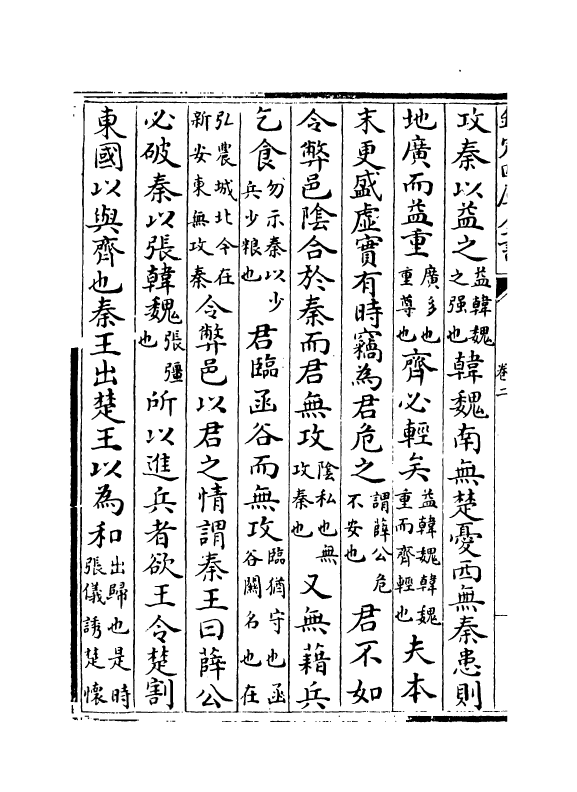 欽定四庫全書
卷二
攻秦以益之益韓魏之强也韓魏南無楚憂西無秦患則
地廣而益重廣多也重尊也齊必輕矣益韓魏韓魏重而齊輕也夫本
末更盛虛實有時竊為君危之謂薛公危不安也君不如
令弊邑陰合於秦而君無攻陰私也無攻秦也又無藉兵
乞食勿示秦以少兵少粮也君臨函谷而無攻臨猶守也函谷關名也在
弘農城北今在新安東無攻秦令弊邑以君之情謂秦王曰薛公
必破秦以張韓魏張彊也所以進兵者欲王令楚割
東國以與齊也秦王出楚王以為和出歸也是時張儀誘楚懷